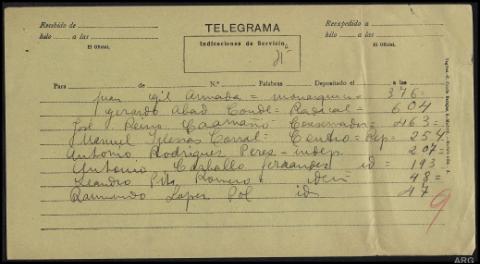 Recibido de
hilo a las
El Oficial,
TELEGRAMA
Indicaciones de Servicio
Expedido a
hilo a las
El Oficial,
Para de N.º Palabras Depositado el a las
Juan Gil Armada = monarquico = 376 =
Gerardo Abad Conde = Radical = 604
José Reino Caamaño Conservador = 463 =
Manuel Iglesias Corral = Centro = Rep = 254
Antonio Rodriguez Perez = indep. 207 =
Antonio Carballo Fernandez id = 193
Leandro Pita Romero = idem 48 =
Raimundo Lopez Pol id 47
9
ARG